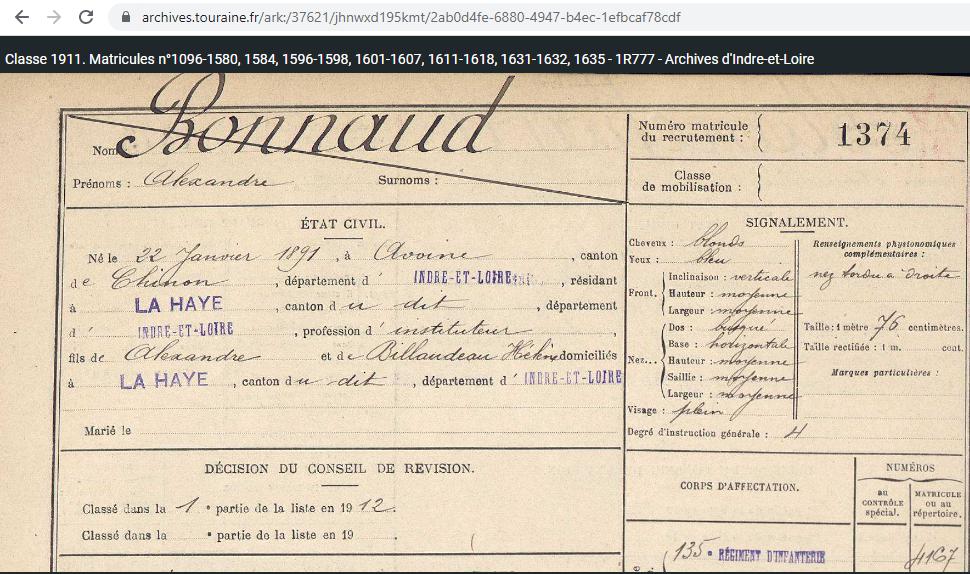 archives.touraine.fr/ark:/37621/jhnwxd195kmt/2ab0d4fe-6880-4947-b4ec-1efbcaf78cdf
Classe 1911. Matricules n°1096-1580, 1584, 1596-1598, 1601-1607, 1611-1618, 1631-1632, 1635 - 1R777 - Archives d'Indre-et-Loire
Nom : Bonnaud
Prénoms : Alexandre Surnoms :
Numéro matricule
du recrutement : 1374
Classe
de mobilisation :
ÉTAT CIVIL.
Né le 22 Janvier 1891, à Avoine, canton
de Chinon, département d' INDRE-ET-LOIRE, résidant
à LA HAYE canton du dit, département
d' INDRE-ET-LOIRE, profession d'instituteur,
fils de Alexandre et de Billaudeau Hélène domiciliés
à LA HAYE, canton du dit, département d' INDRE-ET-LOIRE
Marié le
SIGNALEMENT.
Cheveux : blonds
Yeux : bleu
Front. Inclinaison : verticale
Hauteur : moyenne
Largeur : moyenne
Nez... Dos : busqué
Base : horizontale
Hauteur : moyenne
Saillie : moyenne
Largeur : moyenne
Visage : plein
Degré d'instruction générale : 4
Renseignements physionomiques
complémentaires :
nez tordu à droite
Taille : 1 mètre 76 centimètres.
Taille rectifiée : 1 m. cent.
Marques particulières :
DÉCISION DU CONSEIL DE REVISION.
Classé dans la 1 e partie de la liste en 1912.
Classé dans la e partie de la liste en 19
CORPS D'AFFECTATION.
NUMÉROS
au
CONTRÔLE
spécial.
MATRICULE
ou au
répertoire.
135e RÉGIMENT D'INFANTERIE 4167